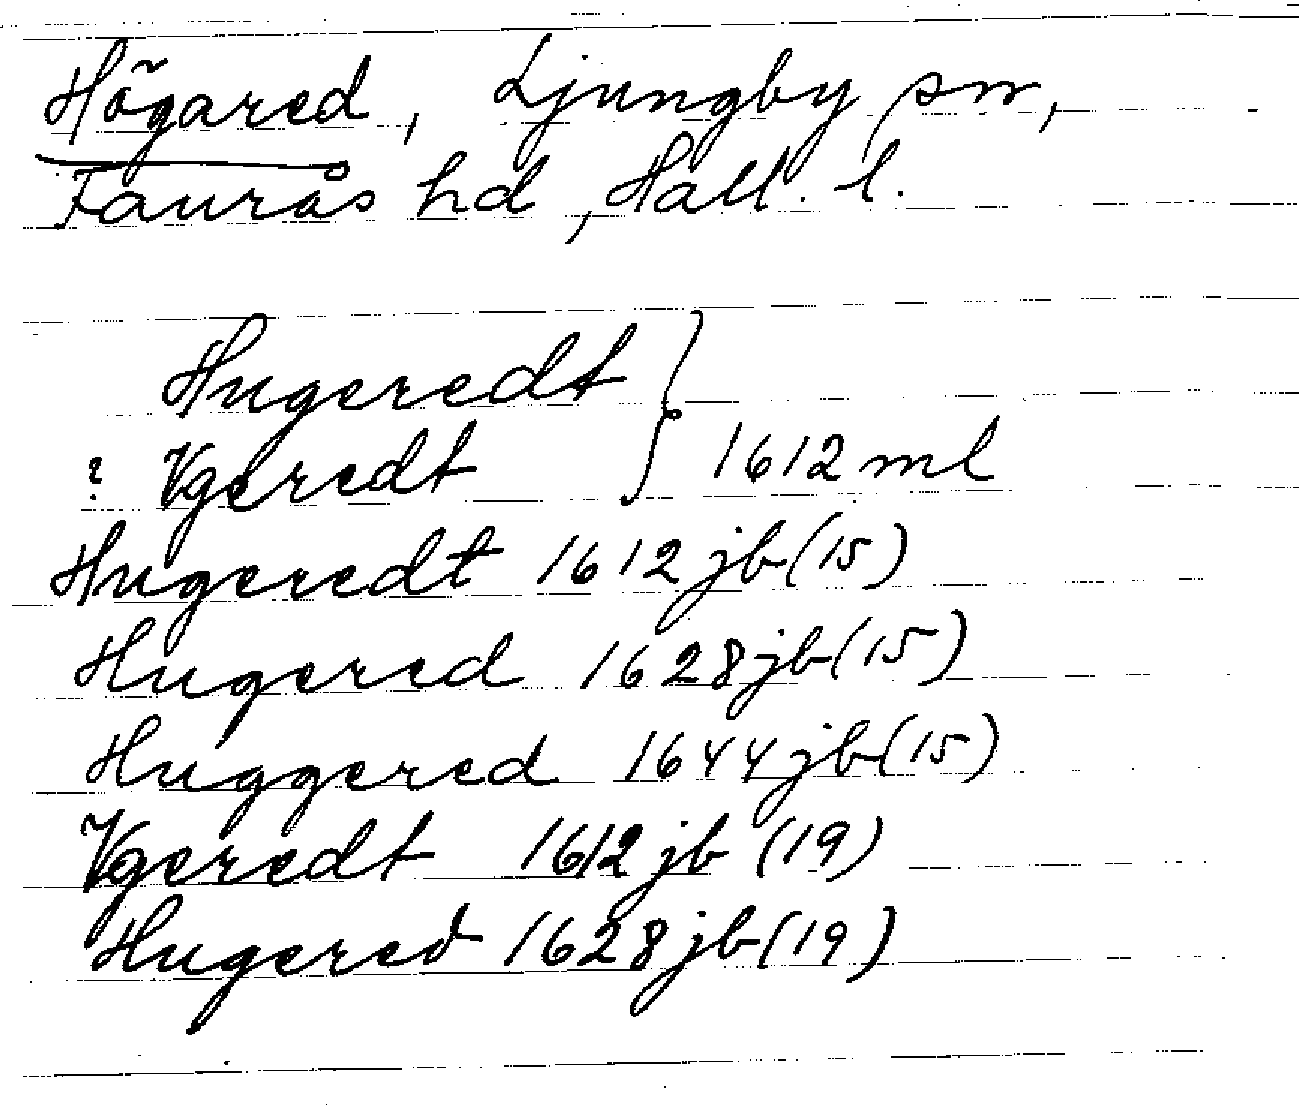 Högared, Ljungby sn,
Faurås hd, Hall. l.
Hugeredt }
? Vgeredt } 1612 ml
Hugeredt 1612 jb (15)
Hugered 1628 jb (15)
Huggered 1644 jb (15)
Vgeredt 1612 jb (19)
Hugered 1628 jb (19)